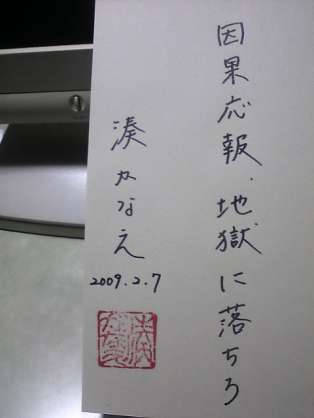 因果応報・地獄に落ちろ
湊かなえ
2009.2.7